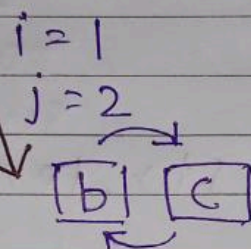 i = 1
j = 2
b c